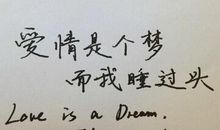 爱情是个梦
而我睡过头
Love is a Dream.